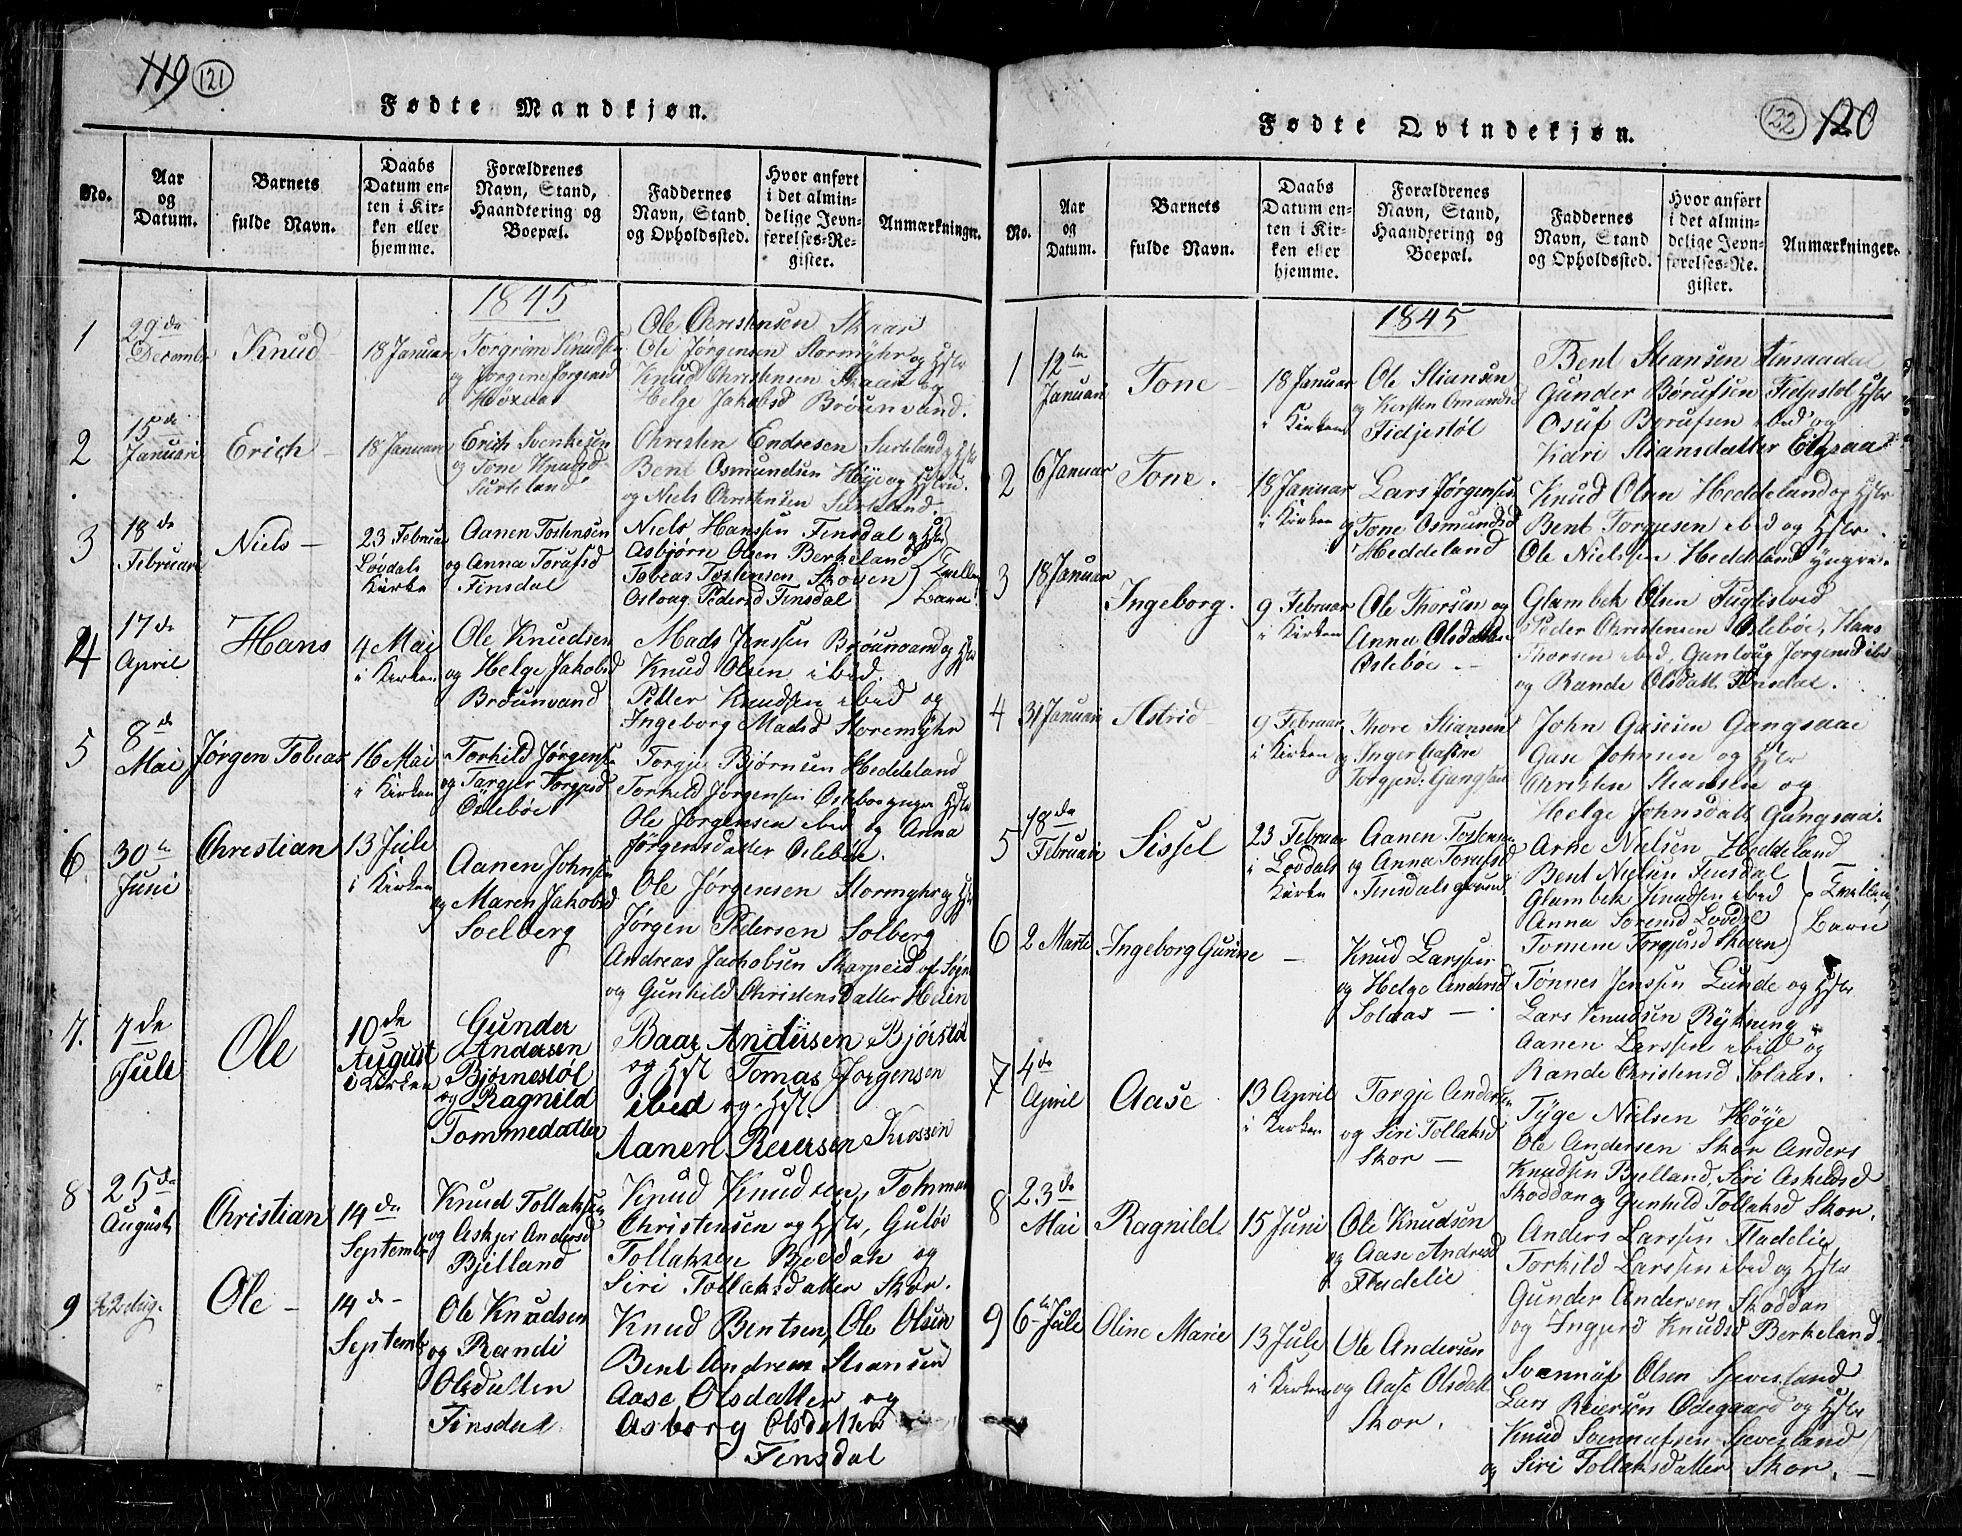 119 (121)
Fødte Mandkjøn.
No.
Aar
og
Datum.
Barnets
fulde Navn.
Daabs
Datum en-
ten i Kir-
ken eller
hjemme.
Forældrenes
Navn, Stand,
Haandtering og
Boepæl.
Faddernes
Navn, Stand
og Opholdssted.
Hvor anført
i det almin-
delige Jevn-
førelses-Re-
gister.
Anmærkninger.
1845
1
29de
Decembr
Knud
18 Januar
Torgrim Knudsen
og Jørgine Jørgensd
Ole Christensen Skaar
Ole Jørgensen Stormyhr og Hstr
Knud Christensen Skaar og
Helge Jakobsd Brøunvand.
2
15de
Januari
Erich
18 Januar
Erich Svenkesen
og Tone Knudsd
Surteland
Christen Endresen Surteland og Hstr
Bent Osmundsen Høye og Hstru.
og Niels Christensen Surteland.
3
18de
Februari
Niels
23 Februar
Løvdals
Kirke
Aanen Tostensen
og Anna Torafsd
Finsdal
Niels Hanssen Finsdal og Hstr
Asbjørn Olsen Berkeland
Tobeas Tostensen Skoven
Oslaug Pedersd Finsdal
Tvilling
Barn
4
17de
April
Hans
4 Mai
i Kirken
Ole Knudsen
og Helge Jakobsd
Brøunvand
Mads Jenssen Brøunvand og Hstr
Knud Olsen ibid.
Petter Knudsen ibed og
Ingeborg Madsd Storemyhr
5
8de
Mai
Jørgen Tobeas
16 Mai
i Kirken
Torkild Jørgens
og Targjer Torgjusd
Oslebøe
Torgje Bjørnsen Heddeland
Torkild Jørgensen Oslebøe yngre Hstr
Ole Jørgensen ibed og Anna
Jørgensdatter Oslebøe.
6
30te
Juni
Christian
13 Jule
i Kirken
Aanen Johns
og Maren Jakobsd
Soelberg
Ole Jørgensen Stormyhr og Hstr
Jørgen Pedersen Solberg
Andreas Jachobsen Skarpeid af Sogn
og Gunhild Christensdatter Heien
7.
7de
Jule
Ole
10de
August
i Kirken
Gunder
Andersen
Bjørnestøl
og Ragnild
Tommedatter
Baar Andersen Bjørstøl
og Hst Tomas Jorgensen
ibed og Hst.
Aanen Reiersen Krossen
8
25de
August
Christian
14de
Septembr
Knud Tollaksen
og Askjer Andersd
Bjelland
Knud Knudsen, Tommas
Christensen og Hstr, Gulov
Tollaksen Bjeddak og
Siri Tollaksdatter Skor.
9
22 Aug.
Ole
14de
Septembr
Ole Knudsen
og Randi
Olsdatter
Finsdal
Knud Bentsen, Ole Olsen
Bent Andreas Stiansen
Aase Olsdatter og
Asborg Olsdatter
Finsdal
(122) 120
Fødte Qvindekjøn.
No.
Aar
og
Datum.
Barnets
fulde Navn.
Daabs
Datum en-
ten i Kir-
ken eller
hjemme.
Forældrenes
Navn, Stand,
Haandtering og
Boepæl.
Faddernes
Navn, Stand
og Opholdssted.
Hvor anført
i det almin-
delige Jevn-
førelses-Re-
gister.
Anmærkninger.
1845
1
12te
Januari
Tone
18 Januar
i Kirken
Ole Stiansen
og Kersten Omundsd
Fidjestøl
Bent Stiansen Finsaadal
Gunder Børufsen Fidjestøl Hstr
Osuf Børufsen ibed og
Kari Stiansdatter Eigsaa
2
6 Januar
Tone.
18 Januar
i Kirken
Lars Jørgensen
og Tone Osmundsd
Heddeland
Knud Olsen Heddeland og Hstr
Bent Torgjesen ibed og Hstr.
Ole Nielssen Heddeland yngre.
3
18 Januar
Ingeborg.
9 Februar
i Kirken
Ole Thorsen og
Anna Olsdatter
Oslebøe
Glambek Olsen Fuglestved
Peder Christensen Oslebøe, Hans
Thorsen ibed, Gunloug Jørgensd ibd
og Rande Olsdatt. Finsdal.
4
31 Januari
Astrid
9 Februar
i Kirken
Thore Stiansen
og Inger
Torgjer: Gangsaa
John Gasesen Gangsaae
Gase Johnsen og Hstr
Christen Stiansen og
Helge Johnsdatt Gangsaa.
5
18de
Februari
Sissel
23 Februar
i Løvdals
Kirke
Aanen Tostensen
og Anna Torufsd
Finsdalsgrund
Arne Nielsen Heddeland
Bent Nielsen Finsdal
Glambek Knudsen ibed
Anna Sorensd Lovdal
Tomene Torgjusd Skoven
Tvilling
Barn
6
2 Marte
Ingeborg Gurine
Knud Larssen
og Helge Andersd
Solaas
Tønnes Jenssen Lunde og Hstr
Lars Knudsen Rykning
Aanen Larssen ibed og
Rande Christensd Solaas.
7
4de
April
Aase
13 April
i Kirken
Torgje Andersen
og Siri Tollaksd
Skor
Tyge Nielsen Høye
Ole Andersen Skor Anders
Knudsen Bjelland, Siri Askildsd
Skoddan og Gunhild Tollaksd Skor.
8
23de
Mai
Ragnild
15 Juni
Ole Knudsen
og Aase Andresd
Fladelie
Anders Larssen Fladelie
Torkild Larssen ibed og Hstr
Gunder Andersen Skoddan
og Ingjerd Knudsd Berkeland
9
6te Jule
Oline Marie
13 Jule
i Kirken
Ole Andersen
og Aase Olsdatt
Skor.
Svennuf Olsen Sjevesland
Lars Reiersen Odegaard og Hstr
Knud Svennufsen Sjevesland
og Siri Tollaksdatter Skor.